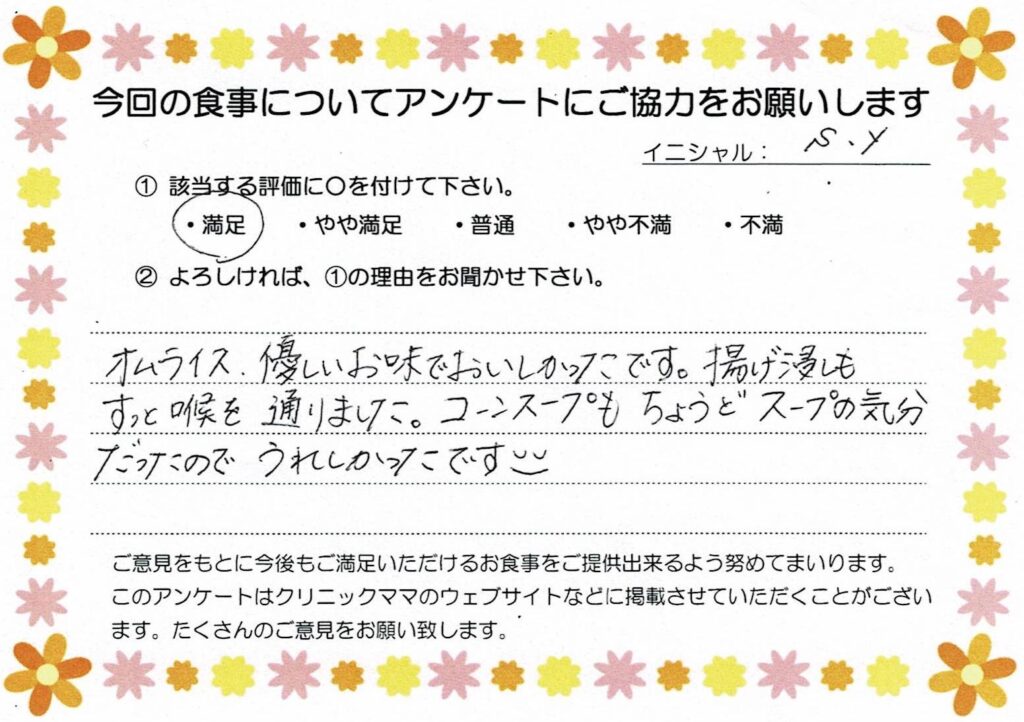 今回の食事についてアンケートにご協力をお願いします
イニシャル： S.Y
① 該当する評価に〇を付けて下さい。
・満足 ・やや満足 ・普通 ・やや不満 ・不満
② よろしければ、①の理由をお聞かせ下さい。
オムライス、優しいお味でおいしかったです。揚げ浸しも
すっと喉を通りました。コーンスープもちょうどスープの気分
だったのでうれしかったです
ご意見をもとに今後もご満足いただけるお食事をご提供出来るよう努めてまいります。
このアンケートはクリニックママのウェブサイトなどに掲載させていただくことがござい
ます。たくさんのご意見をお願い致します。